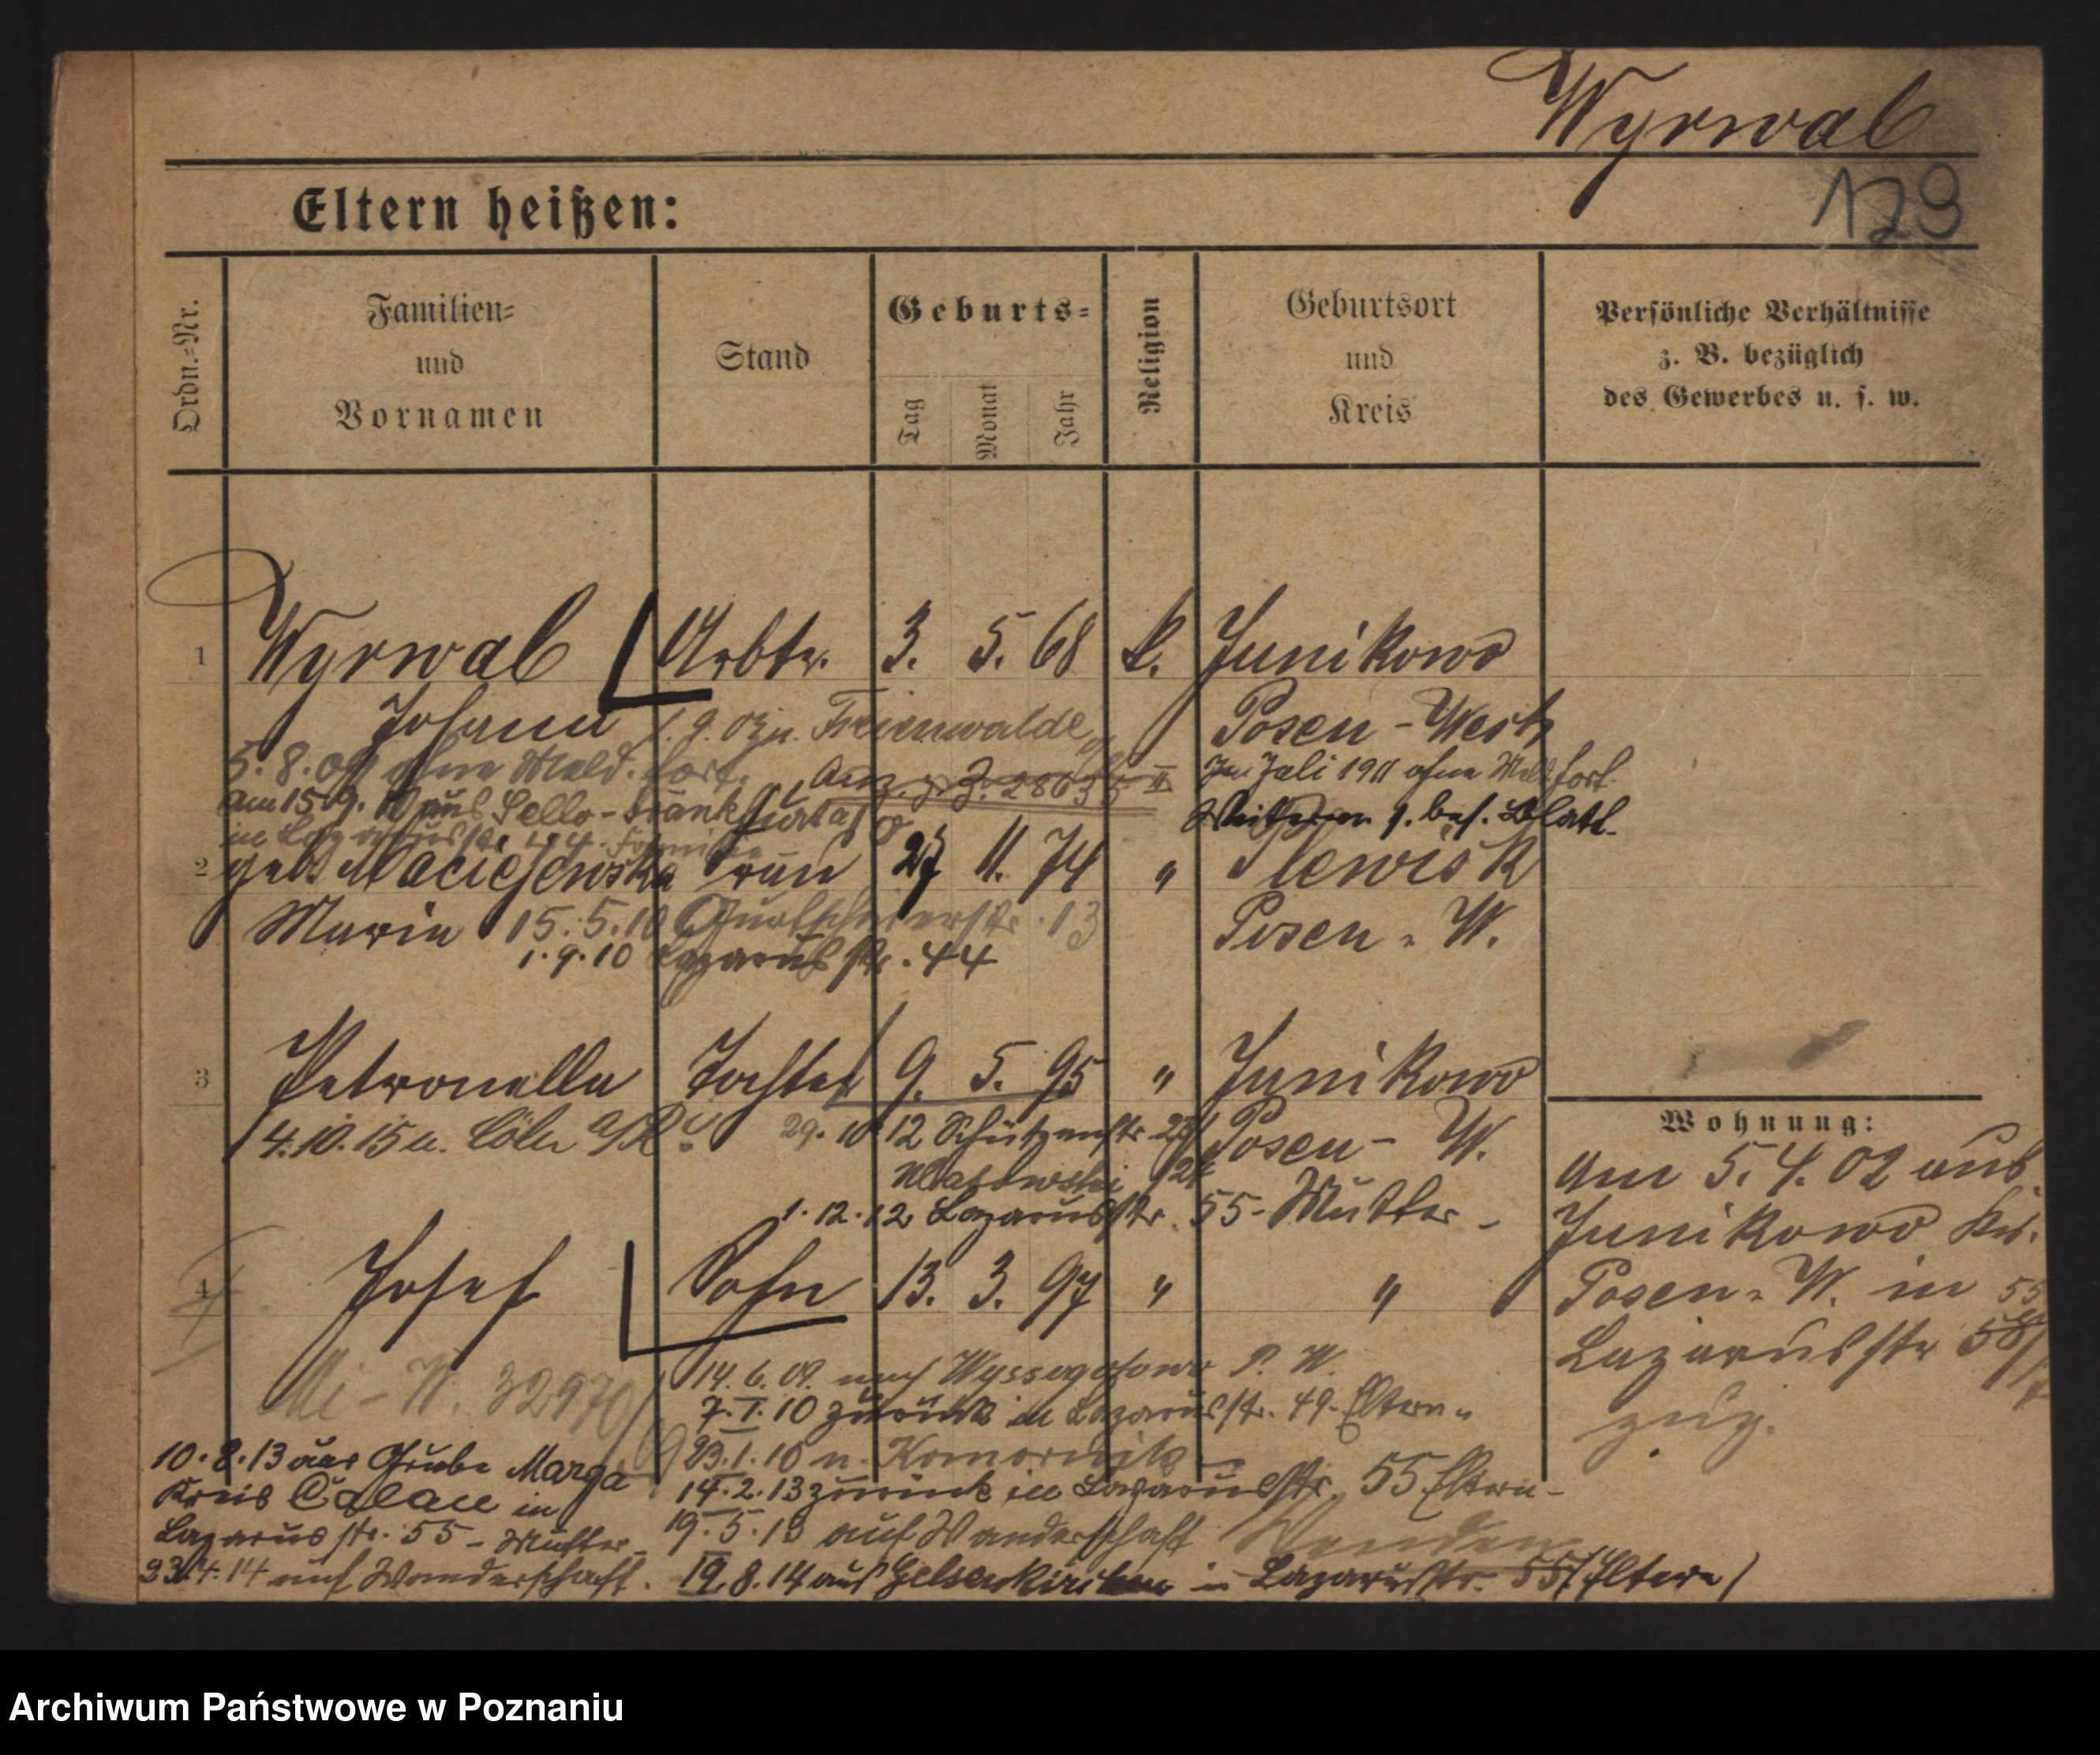 Wyrwal
129
Eltern heißen:
Ordn.-Nr.
Familien-
und
Vornamen
Stand
Geburts-
Tag
Monat
Jahr
Religion
Geburtsort
und
Kreis
Persönliche Verhältnisse
z. B. bezüglich
des Gewerbes u. s. w.
1 Wyrwal Arbtr. 3. 5. 68 k. Junikowo
Johann 1. 9. 03 n. Freienwalde Posen-West
5. 8. 09 ohne Meld. fort. Anz. z. J. 28635 II Im Juli 1911 ohne Meld. fort.
am 15. 9. 10 aus Sello- 
Weiteres s. bes. Blatt.
2 geb. Maciejewska Frau 27 11. 74 " Plewisk
Maria 15. 5. 10 13 Posen-W.
1. 9. 10 Lazarusstr. 44
3 Petronella Tochter 9. 5. 95 " Junikowo
4. 10. 15 n. Cöln a/R. 29. 10. 12 Schützenstr. Posen-W.
1. 12. 12 Lazarusstr. 55 - Mutter -
4 Josef Sohn 13. 3. 97 " "
Mi-W. 32970
14. 6. 09. nach P. W.
7. I. 10 zurück in Lazarusstr. 49. Eltern
23. 1. 10 n. Komornik
14. 2. 13 zurück in Lazarusstr. 55 Eltern -
19. 5. 13 auf Wanderschaft
19. 8. 14 aus Gelsenkirchen in Lazarusstr. 55 (Eltern)
10. 8. 13 aus Grube Marga
Kreis Calau in
Lazarusstr. 55 - Mutter -
23. 4. 14 auf Wanderschaft.
Wohnung:
Am 5. 4. 02 aus
Junikowo Krs.
Posen-W. in 55
Lazarusstr 58/
zug.
Archiwum Państwowe w Poznaniu